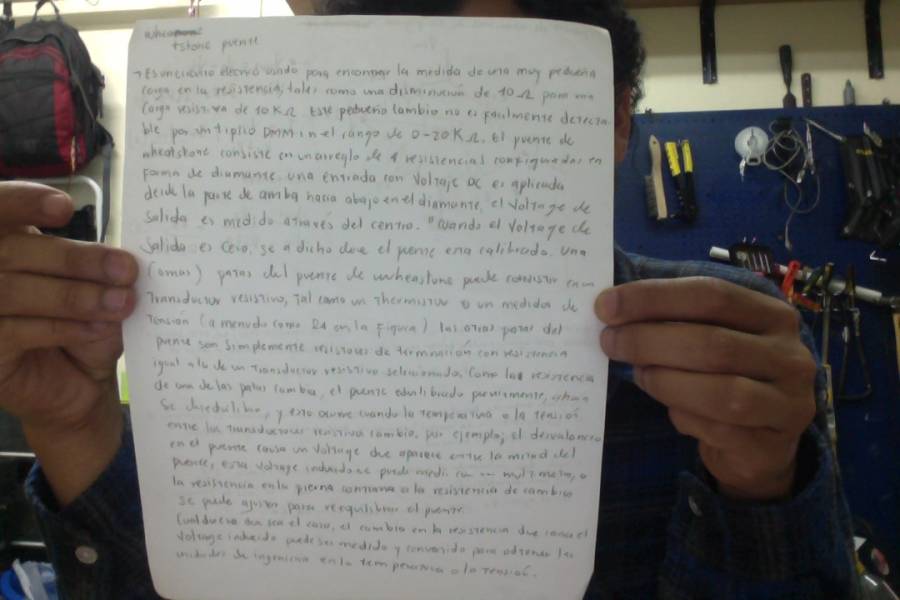 wheatstone puente
→ Es un circuito electrico usado para encontrar la medida de una muy pequeña
carga en la resistencia, tales como una disminución de 10 Ω para una
carga resistiva de 10 K Ω. Este pequeño cambio no es facilmente detecta
ble por un tipico DMM in el rango de 0-20 K Ω. El puente de
wheatstone consiste en un arreglo de 4 resistencias configuradas en
forma de diamante. una entrada con Voltaje DC es aplicada
desde la parte de arriba hacia abajo en el diamante, el Voltage de
Salida es medido atraves del centro. "Cuando el Voltage de
Salida es Cero, se a dicho que el puente esta calibrado. Una
(o mas) patas del puente de wheastone puede consistir en un
Transductor resistivo, tal como un Thermistor o un medidor de
Tensión (a menudo como R1 en la figura) las otras patas del
puente son simplemente resistores de terminación con resistencia
igual a la de un transductor resistivo selecionado. Como la resistencia
de una de las patas cambia, el puente equilibrado previamente, ahora
Se desequilibra, y esto ocurre cuando la temperatura o la tensión
entre los transductores resistivos cambia, por ejemplo; el desvalance
en el puente causa un Voltage que aparece entre la mitad del
puente, este Voltage inducido se puede medir multimetro, o
la resistencia en la pierna contraria a la resistencia de cambio
se puede ajustar para reequilibrar el puente.
Cualquiera que sea el caso, el cambio en la resistencia que causa el
Voltage inducido puede ser medido y convertido para obtener las
unidades de ingenieria en la temperatura o la Tensión.